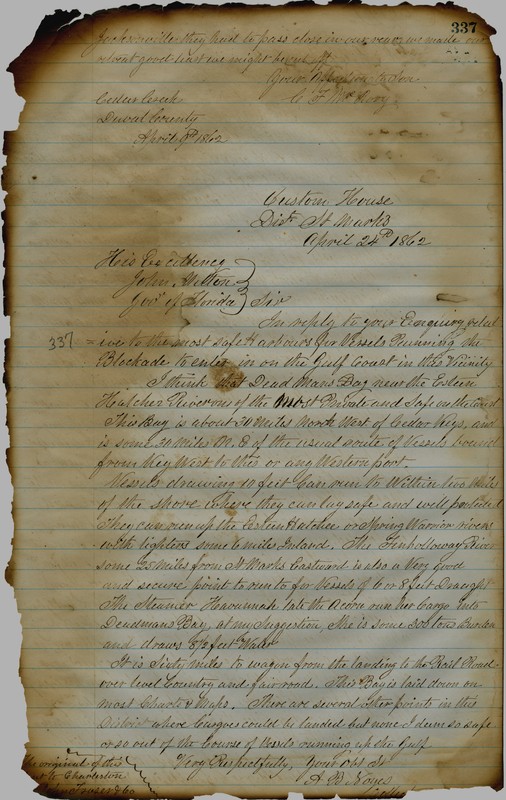 337
Jacksonville they had to pass close in our rear, we made our
retreat good least we might be cut off
Your
C F McCrory
Cedar Creek
Duval County
April 9th 1862
Custom House
Dist St Marks
April 24th 1862
His Excellency
John Milton
Govr of Florida Sir
In reply to your Enquiry relat
337 = ive to the most safe Harbours for Vessels Running the
Blockade to enter in on the Gulf Coast in this Vicinity
I think that Dead Mans Bay near the Esteen
Hatchee River one of the Most Private and Safe
This Bay is about 50 Miles North West of Cedar Keys, and
is some 20 Miles N. E of the usual route of Vessels bound
from Key West to this or any Western port.
Vessels drawing 10 feet can run to Within
of the shore where they can lay safe and well protected
They can run up the Esteen Hatchee or Spring Warrior rivers
with lighters some 6 miles Inland. The Finholloway River
some 25 Miles from St Marks Eastward is also a Very good
and secure point to run to for Vessels of 6 or 8 feet Draught
The Steamer Havannah late the Acorn run her Cargo into
Deadmans Bay, at my Suggestion, She is some 300 tons Burden
and draws 8½ feet Water
It is Sixty miles to wagon from the landing to the Rail Road
over level Country and fair road. This Bay is laid down on
most Charts & Maps. There are several other points in this
District where Cargoes could be landed but none I deem so safe
or so out of the Course of Vessels running up the Gulf
Very Respectfully, Your Obt St
A B Noyes
The original of this
to Charleston
John Fraser & Co